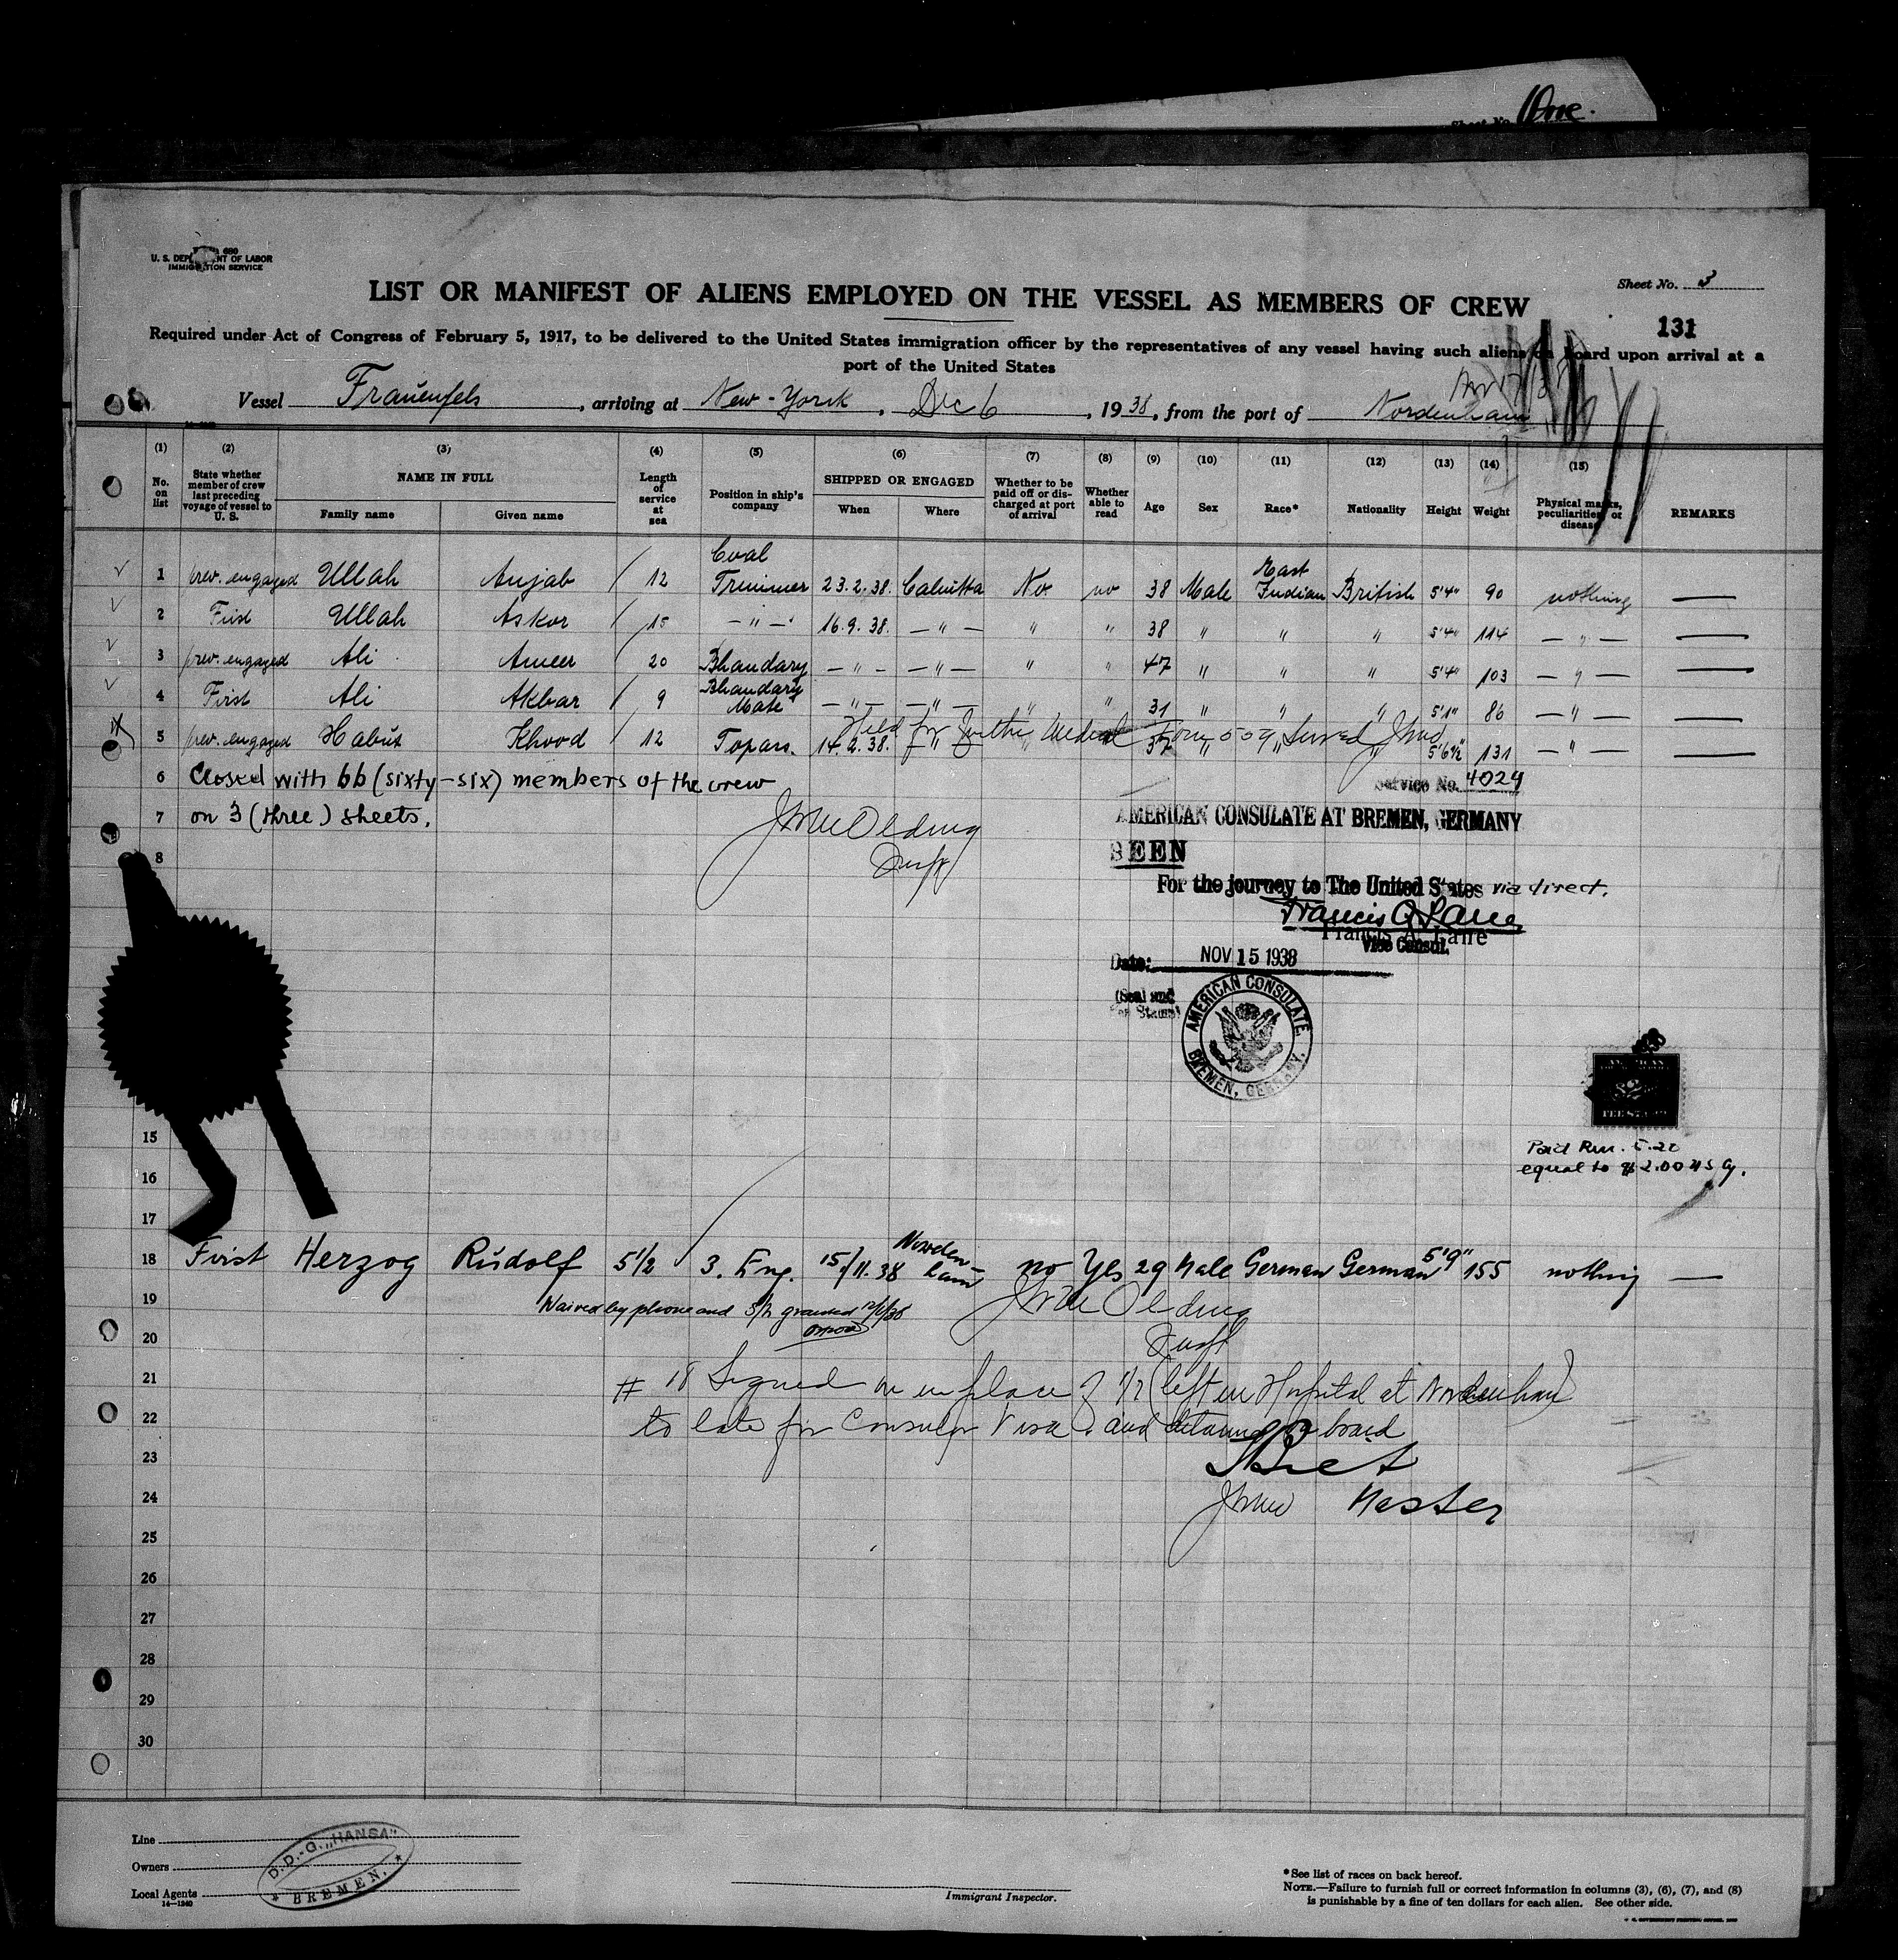 One.
U. S. DEPARTMENT OF LABOR
IMMIGRATION SERVICE
Sheet No. 3
LIST OR MANIFEST OF ALIENS EMPLOYED ON THE VESSEL AS MEMBERS OF CREW
131
Required under Act of Congress of February 5, 1917, to be delivered to the United States immigration officer by the representatives of any vessel having such aliens on board upon arrival at a
port of the United States
Vessel Frauenfels, arriving at New-York, Dec 6, 1938, from the port of Nordenham
(1) (2) (3) (4) (5) (6) (7) (8) (9) (10) (11) (12) (13) (14) (15)
No. on list State whether member of crew last preceding voyage of vessel to U. S. NAME IN FULL Family name Given name Length of service at sea Position in ship's company SHIPPED OR ENGAGED When Where Whether to be paid off or discharged at port of arrival Whether able to read Age Sex Race* Nationality Height Weight Physical marks, peculiarities, or disease REMARKS
1 prev. engaged Ullah Anjab 12 Coal Trimmer 23.2.38. Calcutta No no 38 Male East Indian British 5'4" 90 nothing —
2 First Ullah Askor 15 — " — 16.9.38. — " — " " 38 " " " 5'4" 114 — " — —
3 prev. engaged Ali Ameer 20 Bhandary — " — — " — " " 47 " " " 5'4" 103 — " — —
4 First Ali Akbar 9 Bhandary Mate — " — — " — " " 31 " " " 5'1" 86 — " — —
5 prev. engaged Habux Khood 12 Topars. 14.2.38. — " — " " 37 " " " 5'6½" 131 — " — —
Held for further Medical Form 509 served
6 Closed with 66 (sixty-six) members of the crew
7 on 3 (three) sheets.
8
Service No. 4024
AMERICAN CONSULATE AT BREMEN, GERMANY
SEEN
For the journey to The United States via direct.
Francis A. Lane
Francis A. Lane
Vice Consul.
Date: NOV 15 1938
(Seal and
Fee Stamp)
AMERICAN CONSULATE
BREMEN, GERMANY.
$2
FEE STAMP
Paid Rm. 5.20
equal to $2.00 US G.
15
16
17
18 First Herzog Rudolf 5 1/2 3. Eng. 15/11.38 Norden-ham no Yes 29 Male German German 5'9" 155 nothing —
19 Waived by phone and granted
20
21 # 18 Signed on in place of 1/2 (left in Hospital at Nordenham)
22 to late for Consular Visa and detained on board
23
24 Master
25
26
27
28
29
30
Line
Owners
Local Agents
14—1240
D.D.-G. „HANSA"
* BREMEN. *
Immigrant Inspector.
*See list of races on back hereof.
NOTE.—Failure to furnish full or correct information in columns (3), (6), (7), and (8)
is punishable by a fine of ten dollars for each alien. See other side.